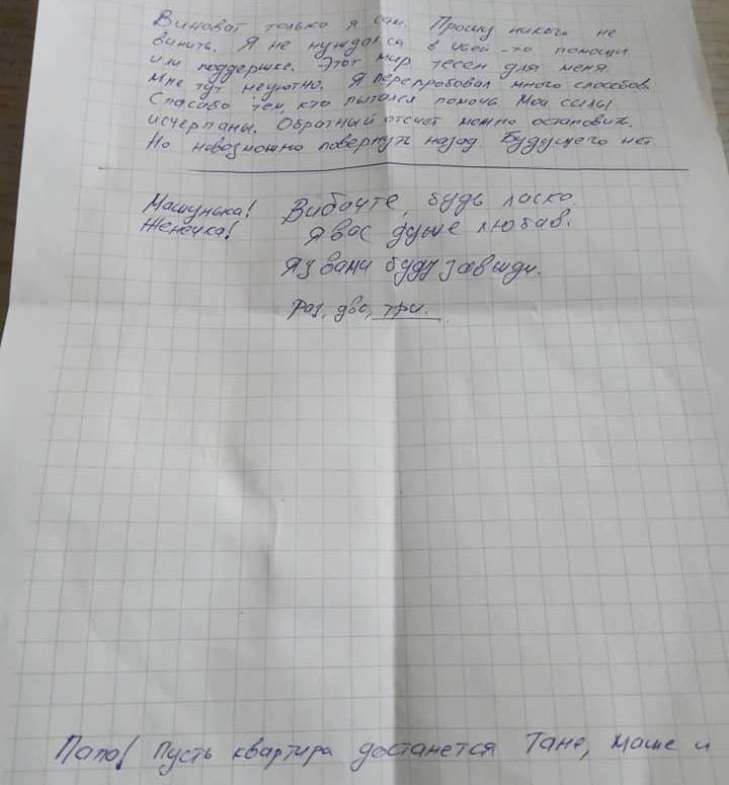 Виноват только я сам. Прошу никого не
винить. Я не нуждался в чьей-то помощи
или поддержке. Этот мир тесен для меня.
Мне тут неуютно. Я перепробовал много способов.
Спасибо тем, кто пытался помочь. Мои силы
исчерпаны. Обратный отсчет можно остановить.
Но невозможно повернуть назад. Будущего нет
Машунька! Вибачте, будь ласка.
Женечка! Я вас дуже любив.
Я з вами буду завжди.
Раз, два, три.
Папа! Пусть квартира достанется Тане, Маше и